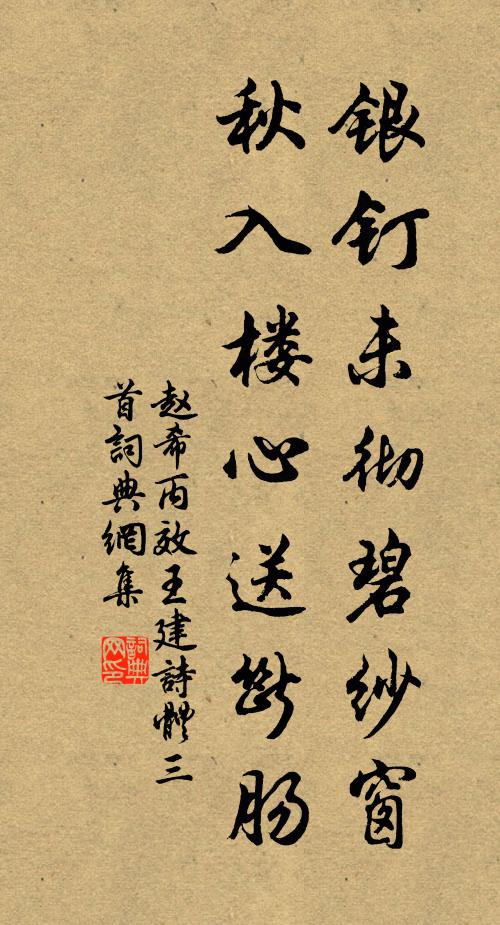 银钉未彻碧纱窗
秋入楼心送断肠
赵希丙效王建詩體三
首詞典網集
詞典
网印